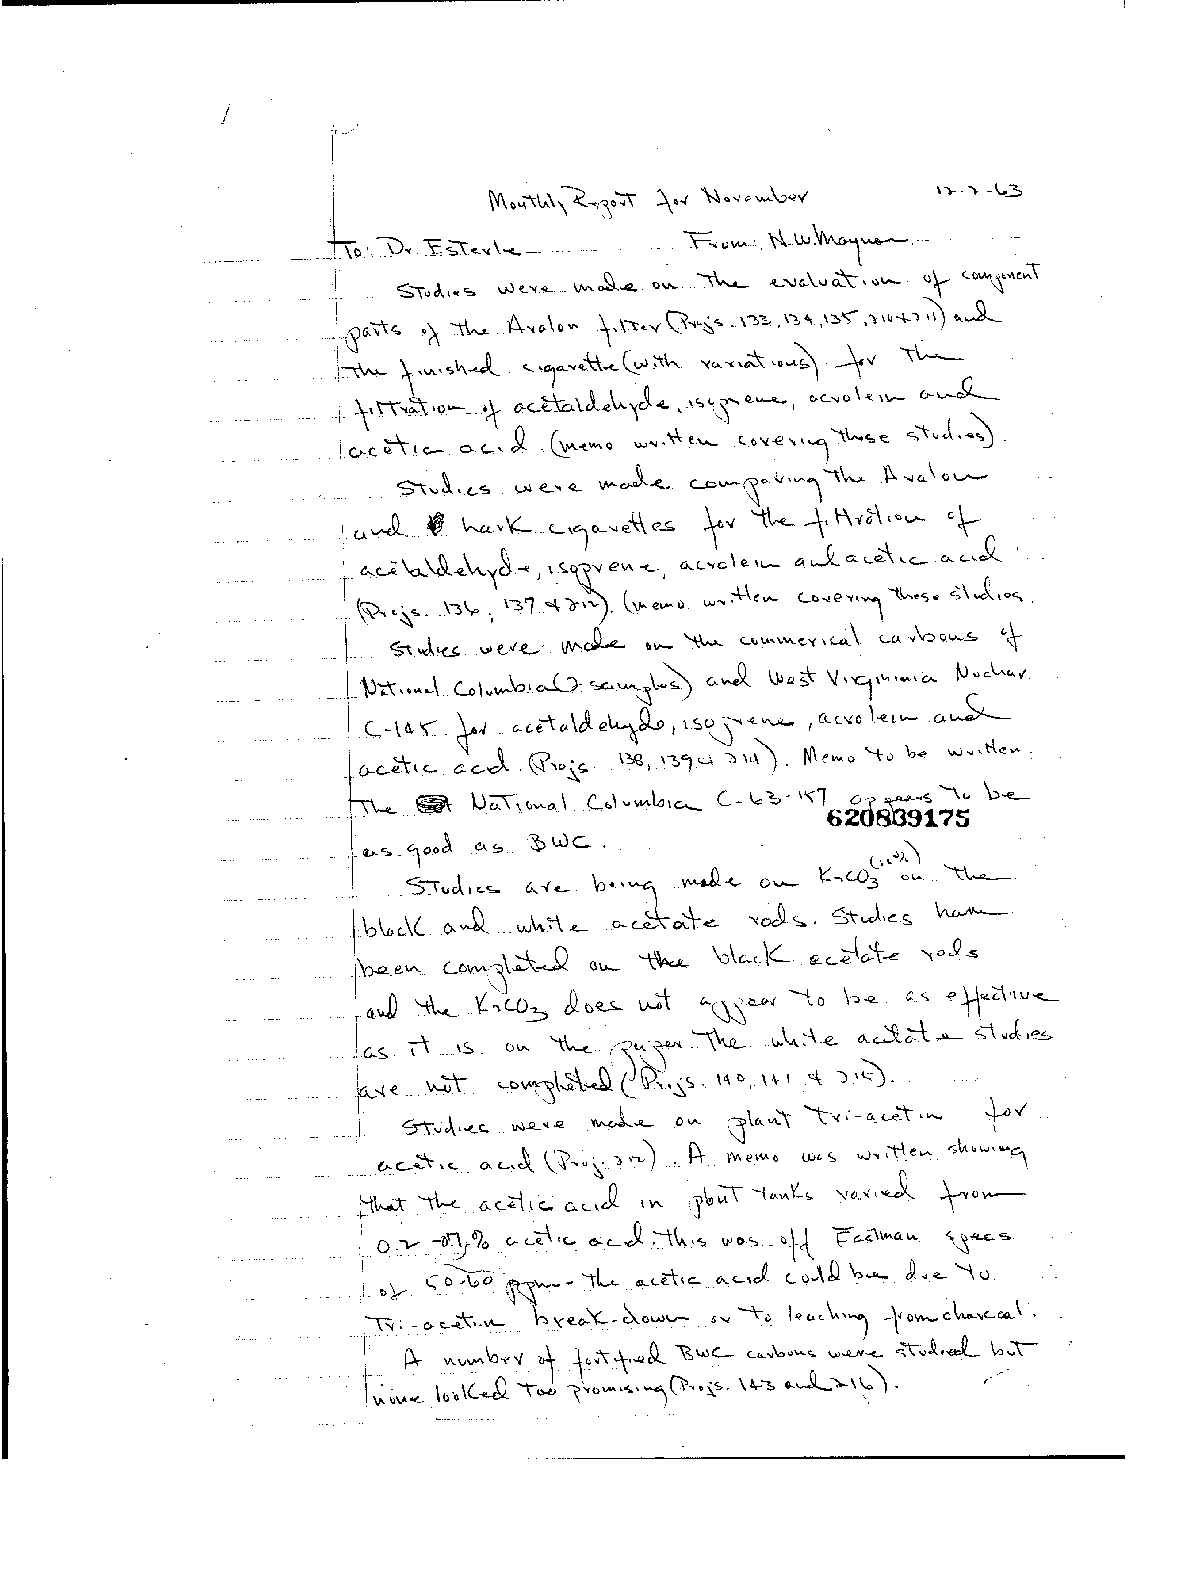 Monthly Report for November 12-2-63
To: Dr. Esterle From: N.W.Maynor
Studies were made on the evaluation of component
parts of the Avalon filter (Projs. 133, 134, 135, 210 & 211) and
the finished cigarette (with variations) for the
filtration of acetaldehyde, isoprene, acrolein and
acetic acid (memo written covering these studies).
Studies were made comparing the Avalon
and Lark cigarettes for the filtration of
acetaldehyde, isoprene, acrolein and acetic acid
(Projs. 136, 137 & 212). (memo written covering these studies.
Studies were made on the commerical carbons of
National Columbia (2 samples) and West Virginia Nuchar
for acetaldehyde, isoprene, acrolein and
acetic acid (Projs. 138, 139 & 214). Memo to be written.
The National Columbia appears to be
620839175
as good as BWC.
Studies are being made on K2CO3 on the
black and white acetate rods. Studies have
been completed on the black acetate rods
and the K2CO3 does not appear to be as effective
as it is on the paper. The white acetate studies
are not completed (Projs. 140, 141 & 215).
Studies were made on plant tri-acetin for
acetic acid (Proj. 212). A memo was written showing
that the acetic acid in plant tanks varied from
% acetic acid. This was off Eastman specs
of 50-60 ppm - The acetic acid could be due to
tri-acetin break-down or to leaching from charcoal.
A number of fortified BWC carbons were studied but
none looked too promising (Projs. 143 and 216).